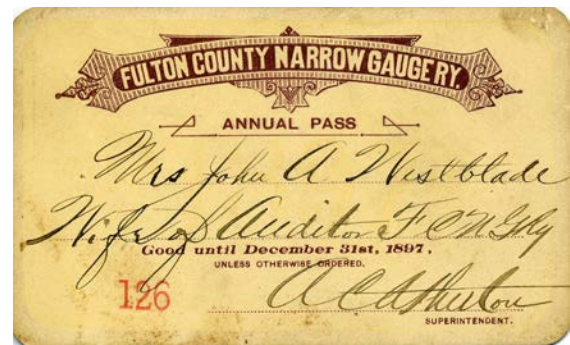 FULTON COUNTY NARROW GAUGE RY.
ANNUAL PASS
Mrs John A Westblade
Wife of Auditor F C N G Ry
Good until December 31st, 1897,
UNLESS OTHERWISE ORDERED.
126 A C Atherton
SUPERINTENDENT.